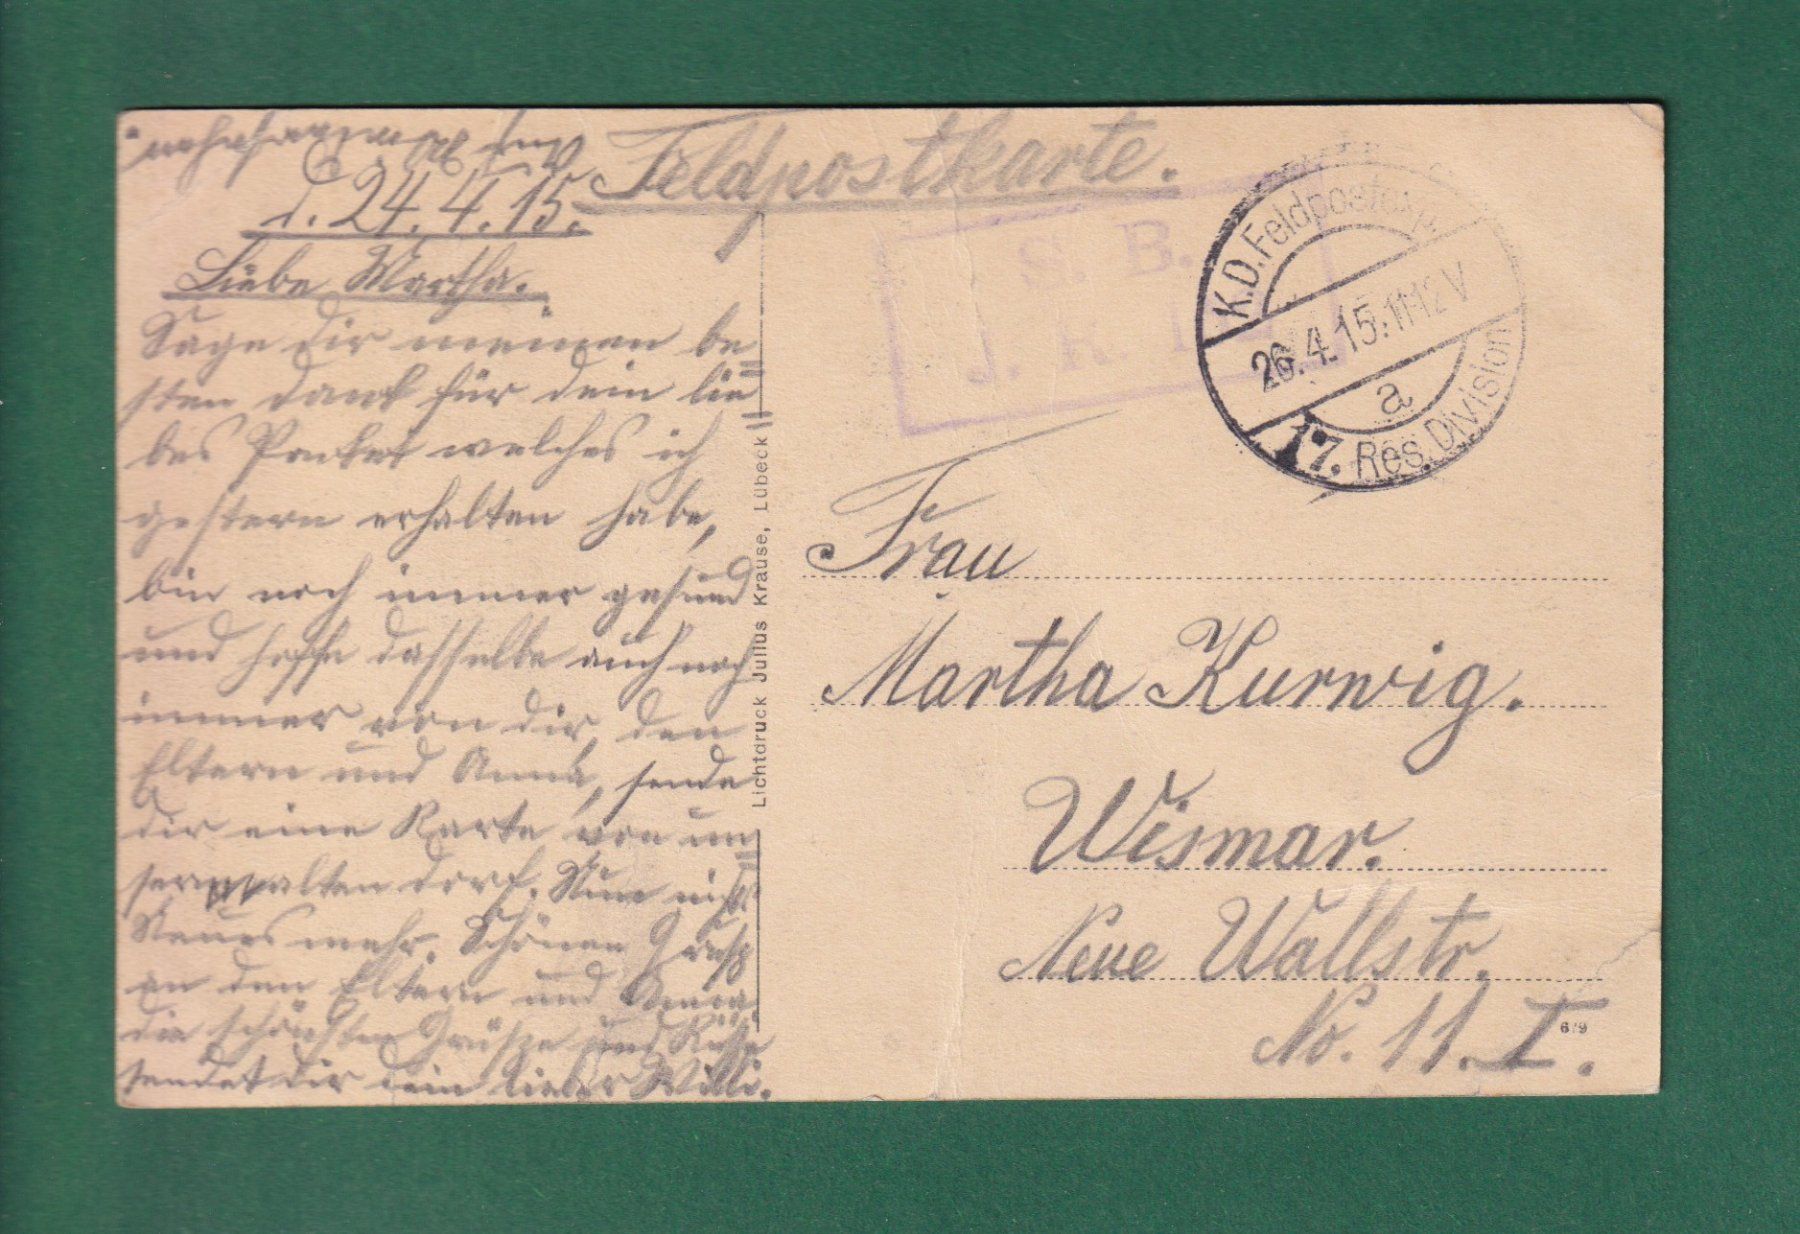 Auf Wiedersehen.
d. 24.4.15.
Liebe Martha.
Sage dir meinen be=
sten Dank für dein lie=
bes Packet welches ich
gestern erhalten habe,
bin noch immer gesund
und hoffe dasselbe auch noch
immer von dir, den
Eltern und Anna, sende
dir eine Karte von un=
alten Dorf. Nun nichts
Neues mehr. Schönen Gruß
an den Eltern und Anna.
die schönsten Grüße und Küsse
sendet dir dein lieber Willi.
Feldpostkarte.
S. B.
J. R.
K.D. Feldpostexp.
26.4.15. 11-12 V
a
17. Res. Division
Lichtdruck Julius Krause, Lübeck
Frau
Martha Kurwig.
Wismar.
Neue Wallstr.
No. 11. I.
619